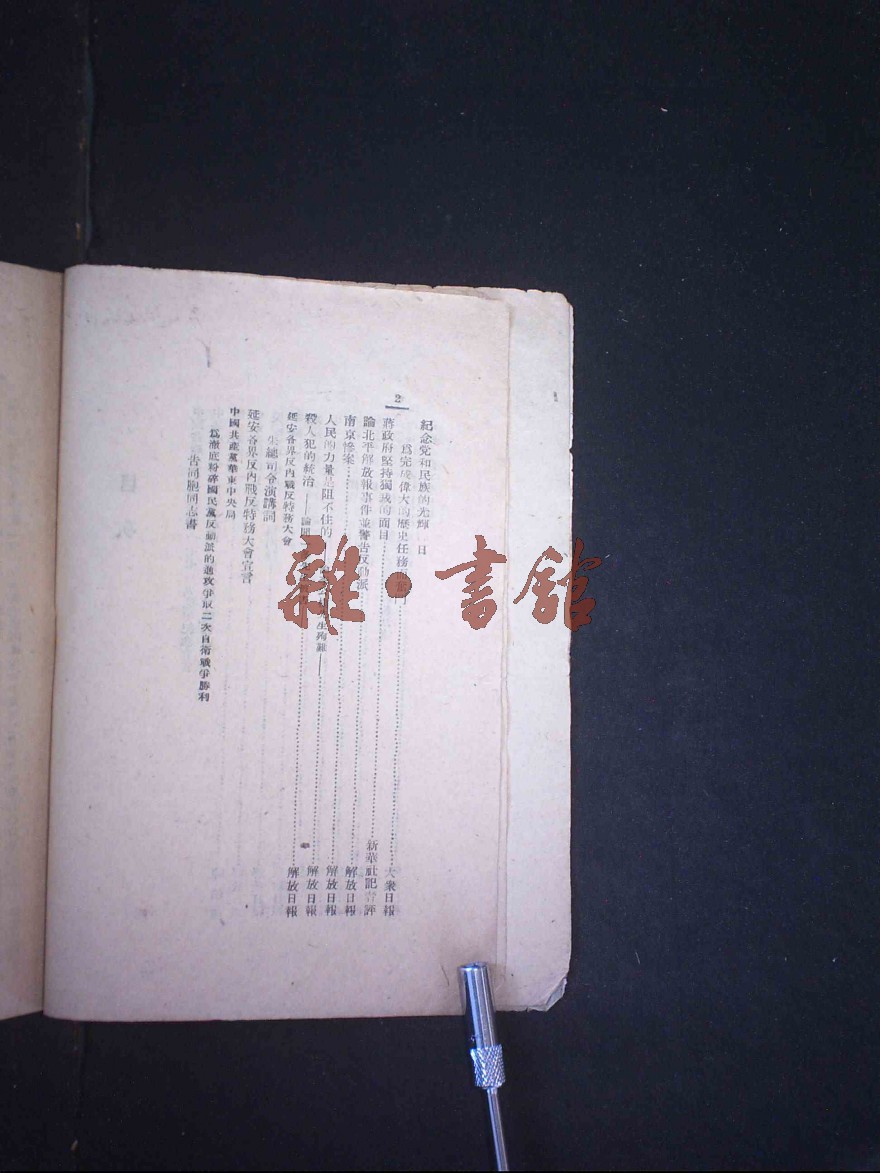 2
紀念党和民族的光輝 日
爲完成偉大的歷史任務而奮鬥……大衆日報
蔣政府堅持獨裁的面目
論北平解放報事件並警告反動派……新華社記者評
南京慘案……解放日報
人民的力量是阻不住的……解放日報
殺人犯的統治……解放日報
延安各界反內戰反特務大會……解放日報
朱總司令演講詞
延安各界反內戰反特務大會宣言
中國共產黨華東中央局
爲澈底粉碎國民黨反動派的進攻爭取二次自衛戰爭勝利
告同胞同志書
雜·書館